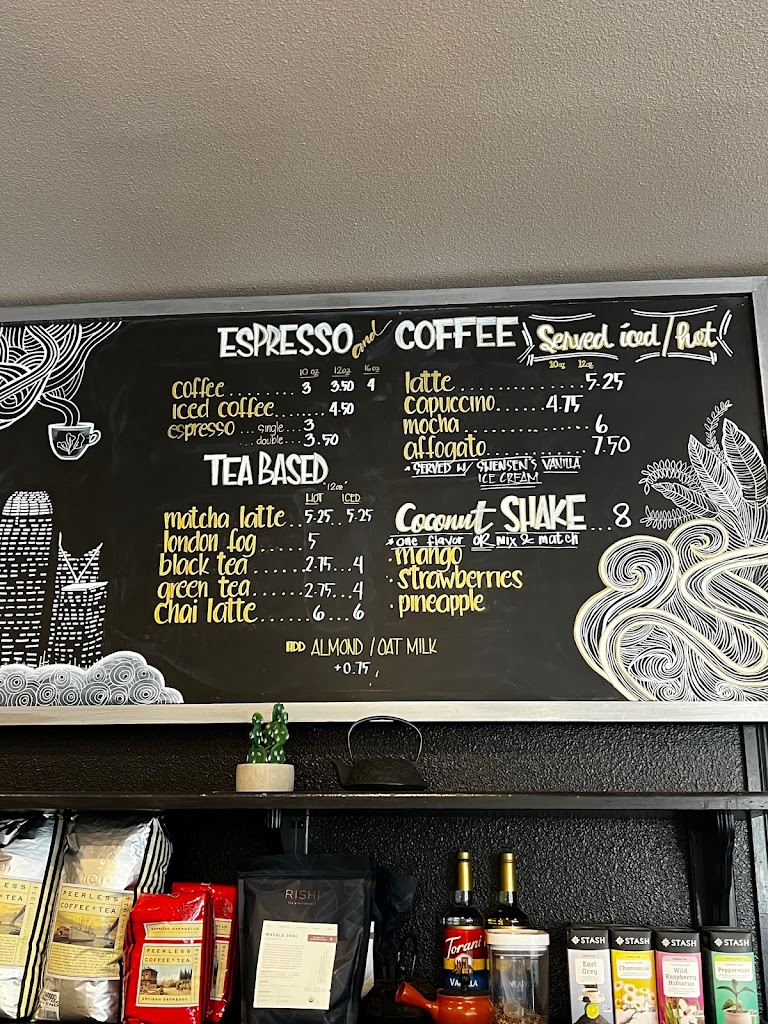 ESPRESSO and COFFEE Served iced/hot
10 oz 12oz 16oz
coffee........ 3 3.50 4
iced coffee........ 4.50
espresso... single... 3
...double... 3.50
10oz 12oz
latte................ 5.25
capuccino...... 4.75
mocha................ 6
affogato............ 7.50
*SERVED W/ SWENSEN'S VANILLA
ICE CREAM
TEA BASED
"12oz"
HOT ICED
matcha latte..5.25..5.25
london fog...... 5
black tea........2.75...4
green tea.......2.75...4
chai latte....... 6...6
ADD ALMOND / OAT MILK
+0.75
Coconut SHAKE...8
*one flavor OR mix & match
· mango
· strawberries
· pineapple
PEERLESS
COFFEE & TEA
PEERLESS
COFFEE & TEA
ESPRESSO CARAMELLO
PEERLESS
COFFEE & TEA
ARTISAN ESPRESSO
RISHI
TEA & BOTANICALS
MASALA CHAI
RISHI
Torani
VANILLA
STASH
Earl
Grey
STASH
Chamomile
STASH
Wild
Raspberry
Hibiscus
STASH
Peppermint